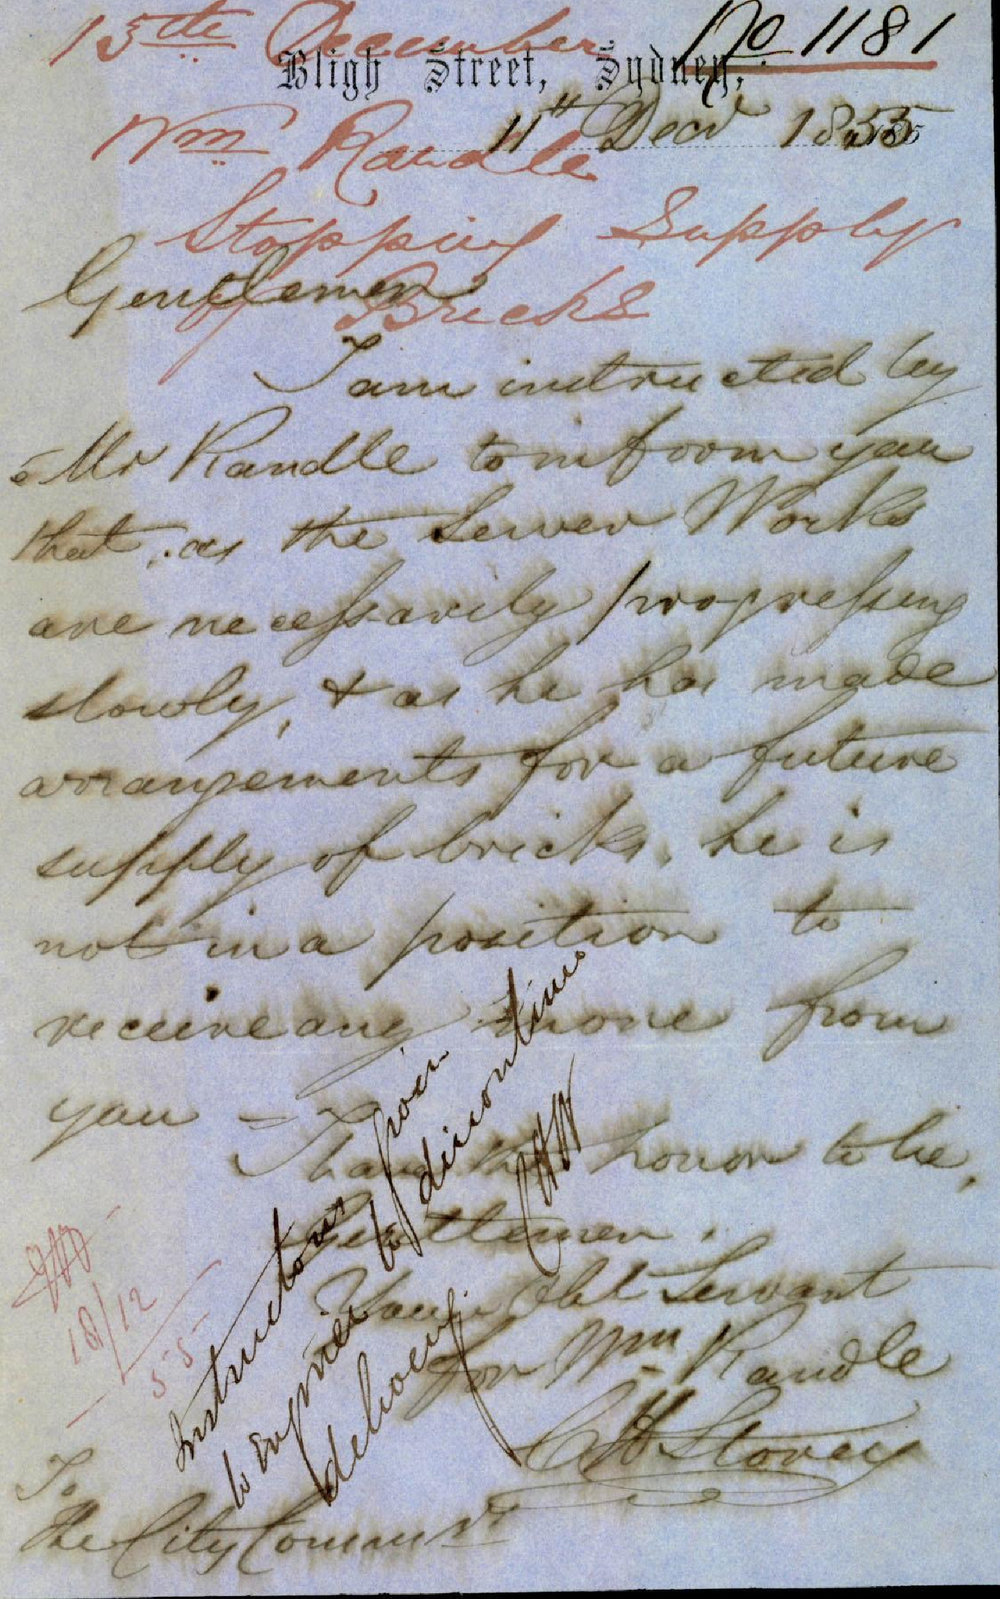 15th December No 1181
Bligh Street, Sydney,
11th Decr 1855
Wm Randle
Stopping Supply
of Bricks
Gentlemen
I am instructed by
Mr Randle to inform you
that, as the Sewer Works
are necessarily progressing
slowly, & as he has made
arrangements for a future
supply of bricks, he is
not in a position to
receive any more from
you –
I have the honor to be,
Gentlemen,
Your Obt Servant
for Wm Randle
CH Stovey
To
The City Commrs
Instructions given
to Engineer to discontinue
delivery
18/12
55